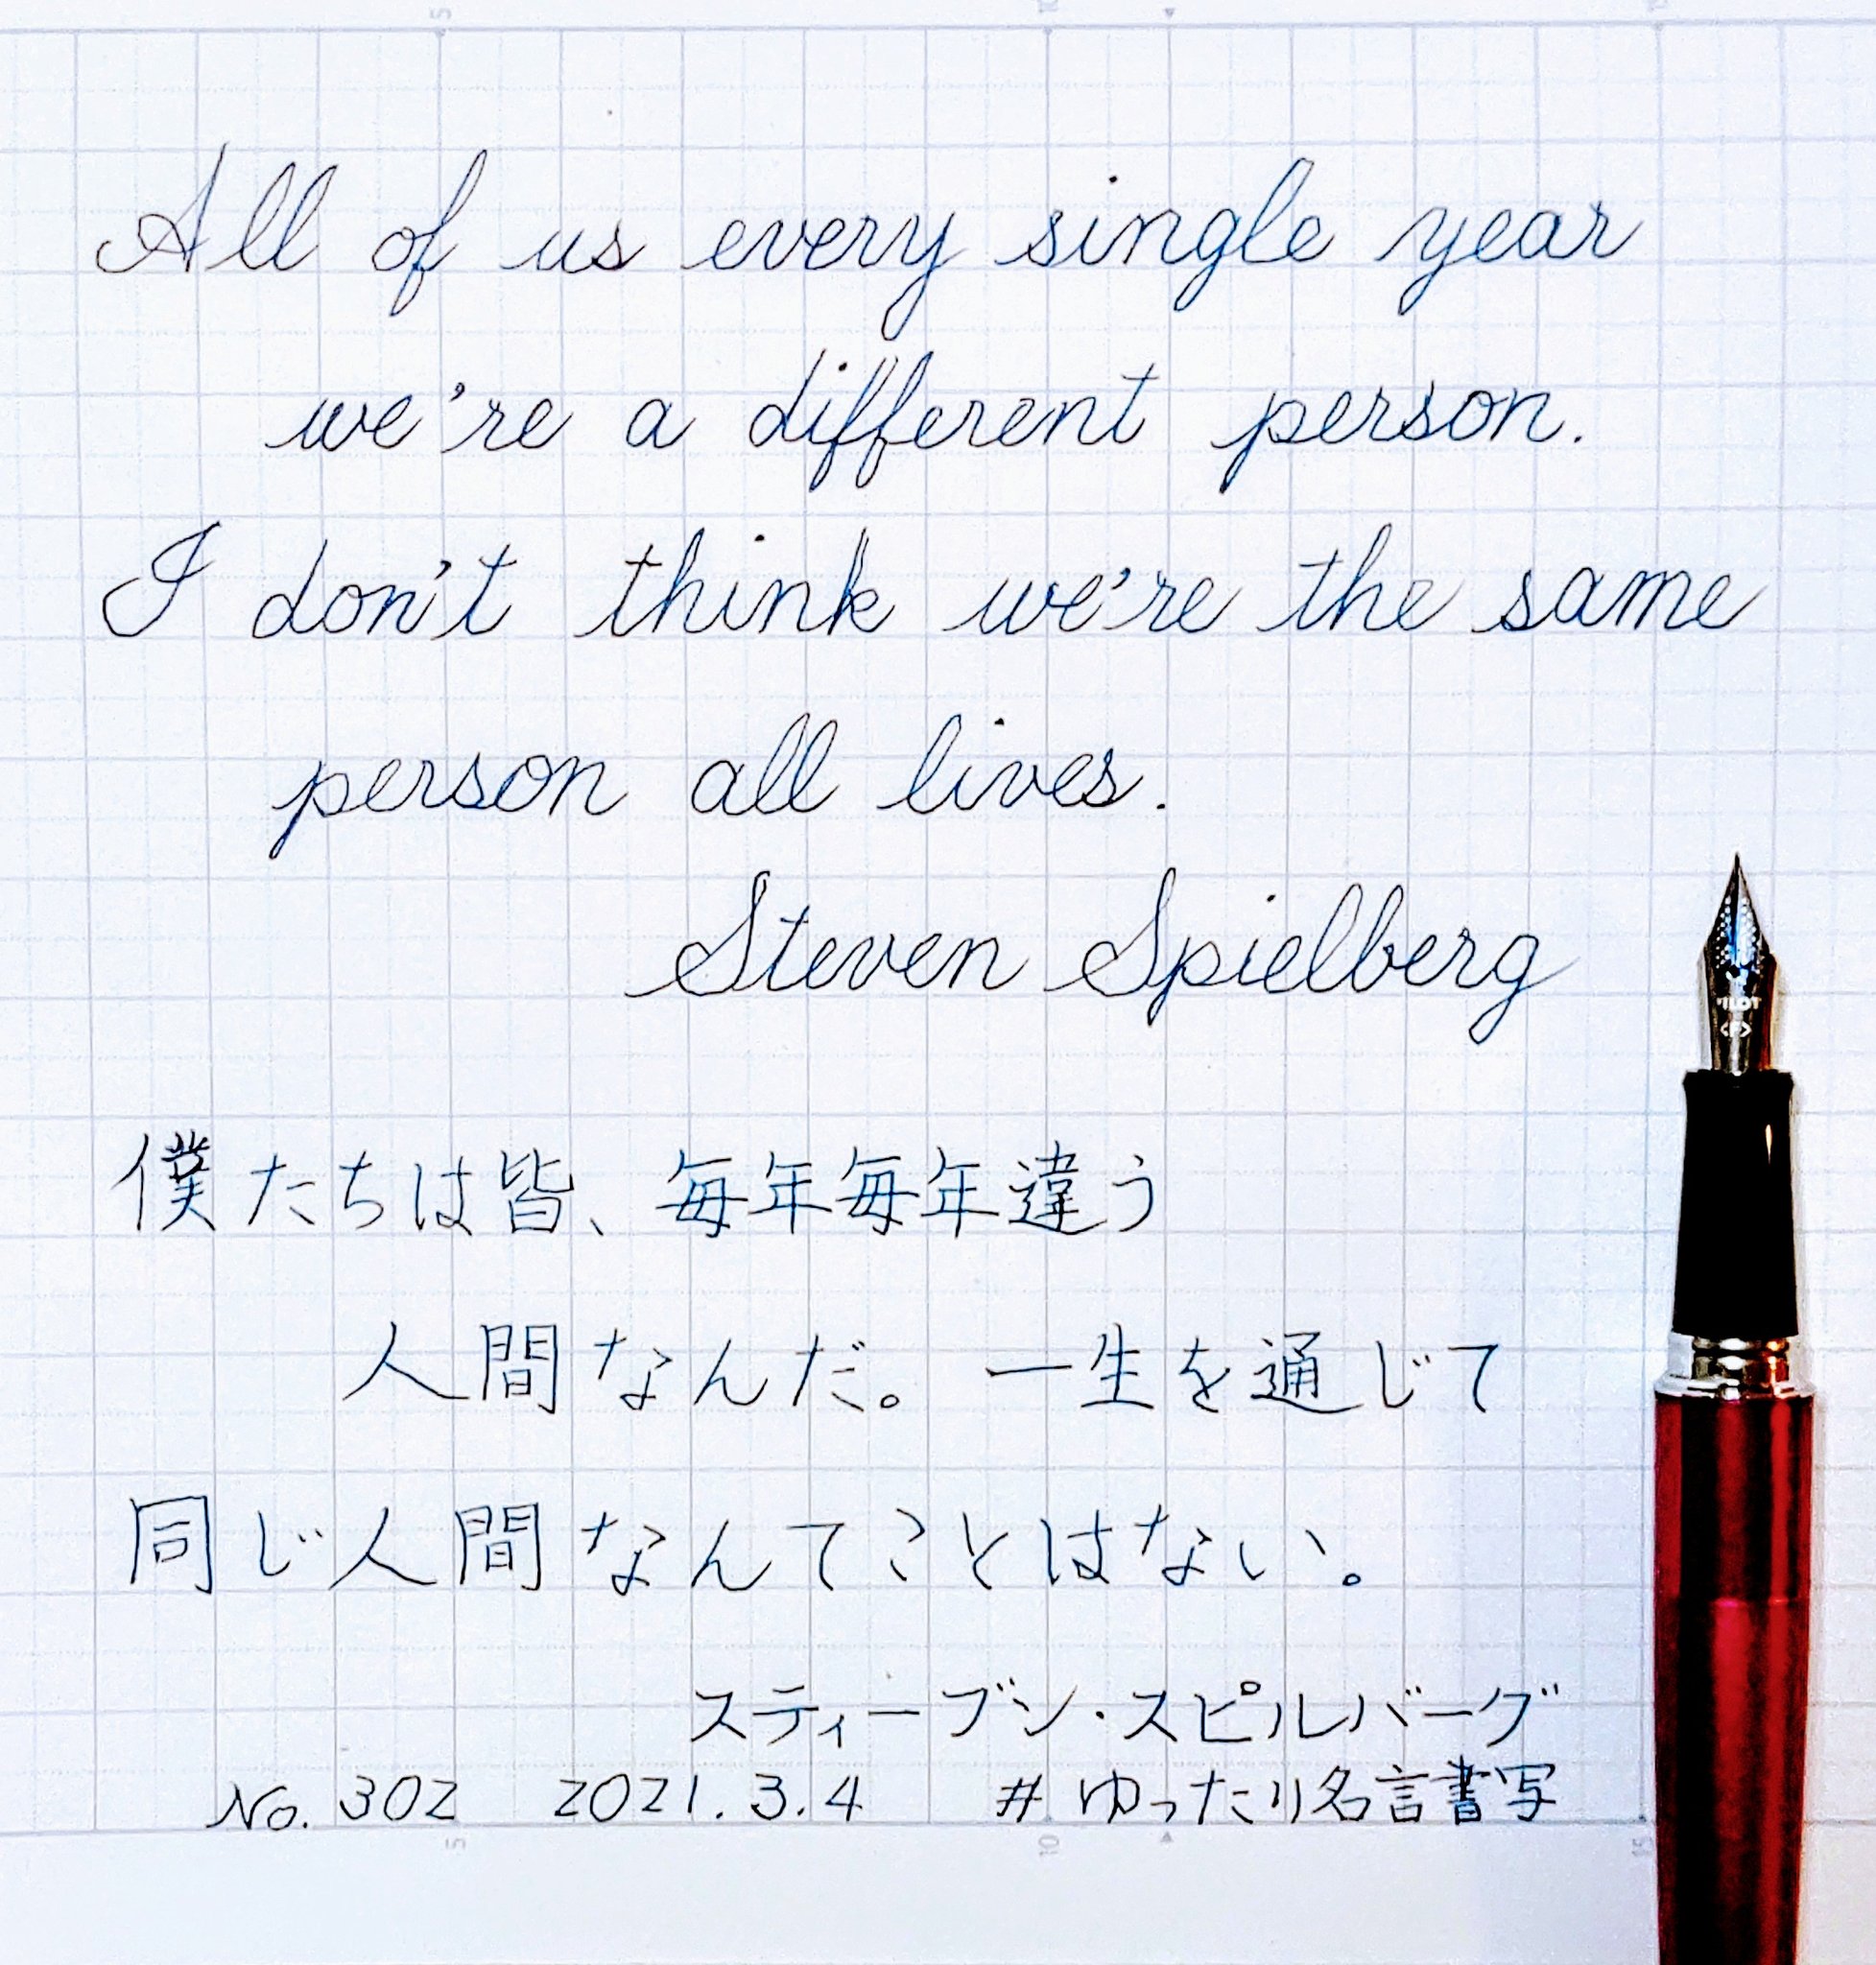 All of us every single year
we're a different person.
I don't think we're the same
person all lives.
Steven Spielberg
僕たちは皆、毎年毎年違う
人間なんだ。一生を通じて
同じ人間なんてことはない。
スティーブン・スピルバーグ
No. 302 2021.3.4 #ゆったり名言書写
5 10 15
PILOT
<F>